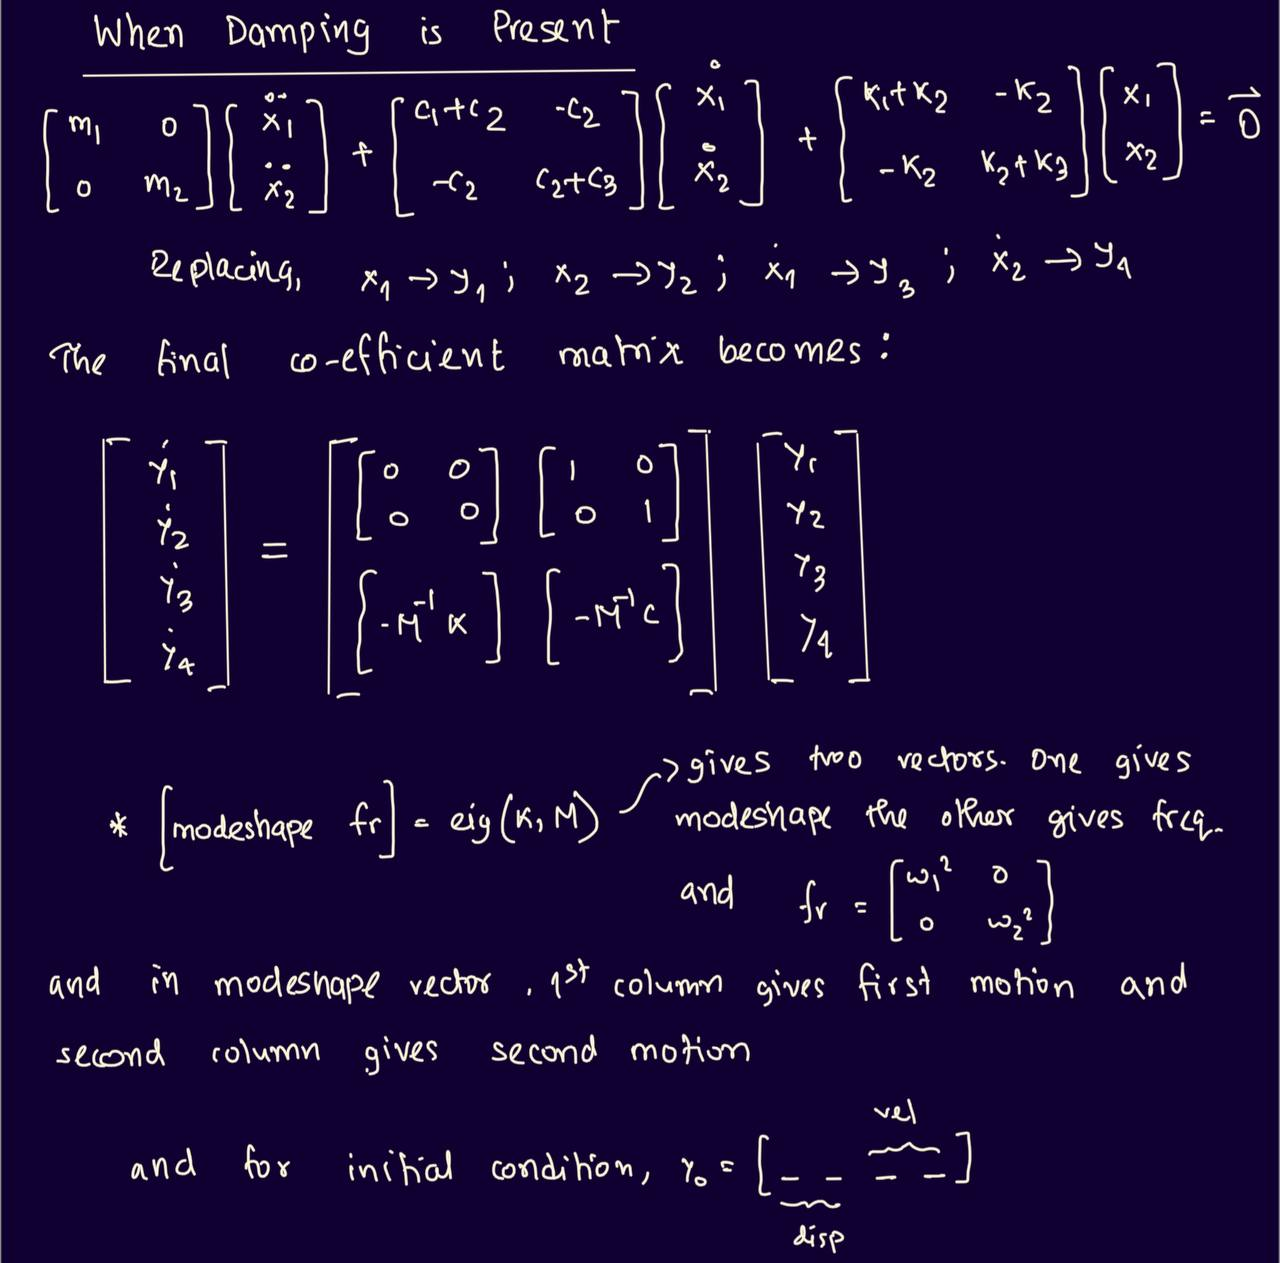 When Damping is Present
[m₁ 0; 0 m₂] [ẍ₁; ẍ₂] + [c₁+c₂ -c₂; -c₂ c₂+c₃] [ẋ₁; ẋ₂] + [K₁+K₂ -K₂; -K₂ K₂+K₃] [x₁; x₂] = 0⃗
Replacing, x₁ → y₁ ; x₂ → y₂ ; ẋ₁ → y₃ ; ẋ₂ → y₄
The final co-efficient matrix becomes :
[ẏ₁; ẏ₂; ẏ₃; ẏ₄] = [[0 0; 0 0] [1 0; 0 1]; [-M⁻¹K] [-M⁻¹C]] [y₁; y₂; y₃; y₄]
* [modeshape fr] = eig(K, M) → gives two vectors. One gives
modeshape the other gives freq.
and fr = [ω₁² 0; 0 ω₂²]
and in modeshape vector, 1st column gives first motion and
second column gives second motion
and for initial condition, y₀ = [_ _ _ _]
vel
disp